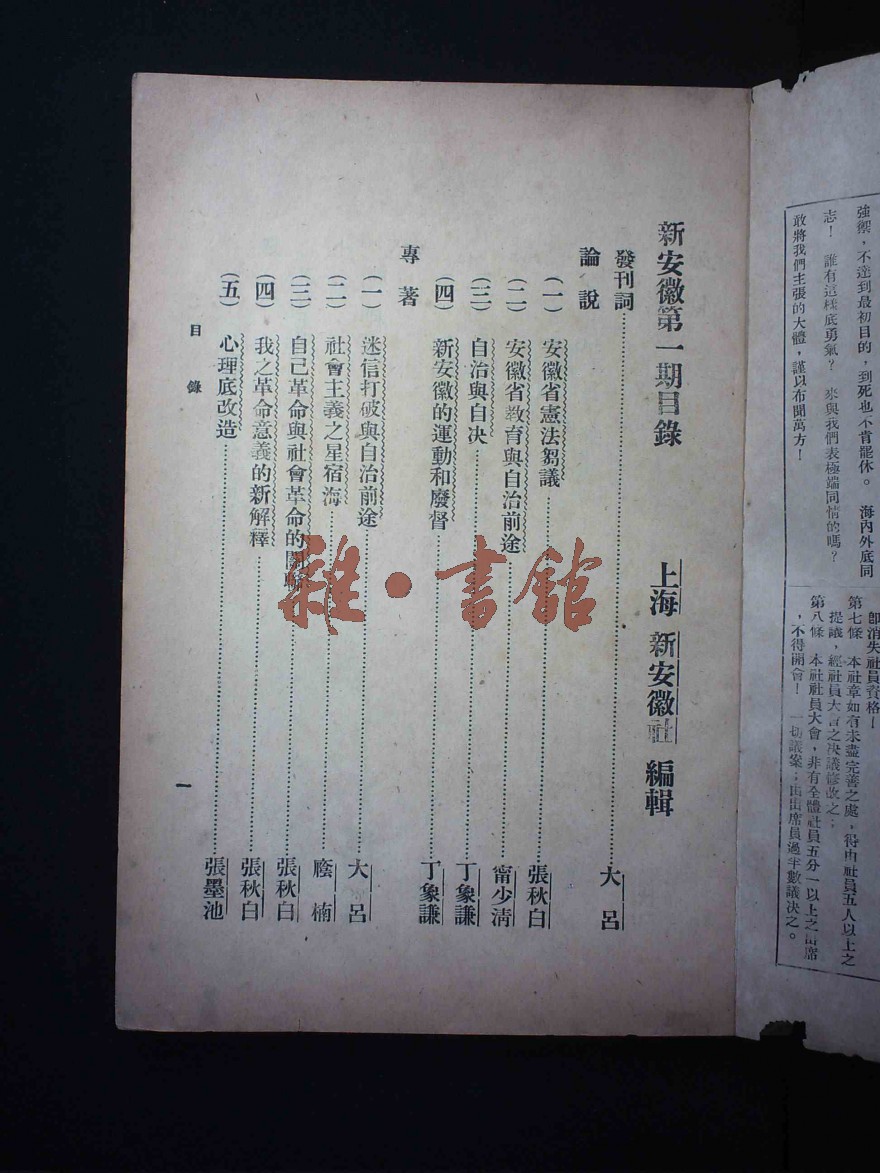 強禦，不達到最初目的，到死也不肯罷休。　海內外底同
志！　誰有這樣底勇氣？　來與我們表極端同情的嗎？
敢將我們主張的大體，謹以布聞萬方！
卽消失社員資格！
第七條　本社章如有未盡完善之處，得由社員五人以上之
提議，經社員大會之決議修改之；
第八條　本社社員大會，非有全體社員五分一以上之出席
，不得開會！　一切議案；由出席員過半數議決之。
新安徽第一期目錄　上海　新安徽社　編輯
發刊詞……大　呂
論　說
（一）　安徽省憲法芻議……張秋白
（二）　安徽省教育與自治前途……甯少清
（三）　自治與自決……丁象謙
（四）　新安徽的運動和廢督……丁象謙
專　著
（一）　迷信打破與自治前途……大　呂
（二）　社會主義之星宿海……楠
（三）　自己革命與社會革命的關聯……張秋白
（四）　我之革命意義的新解釋……張秋白
（五）　心理底改造……張墨池
目　錄
一
雜·書館